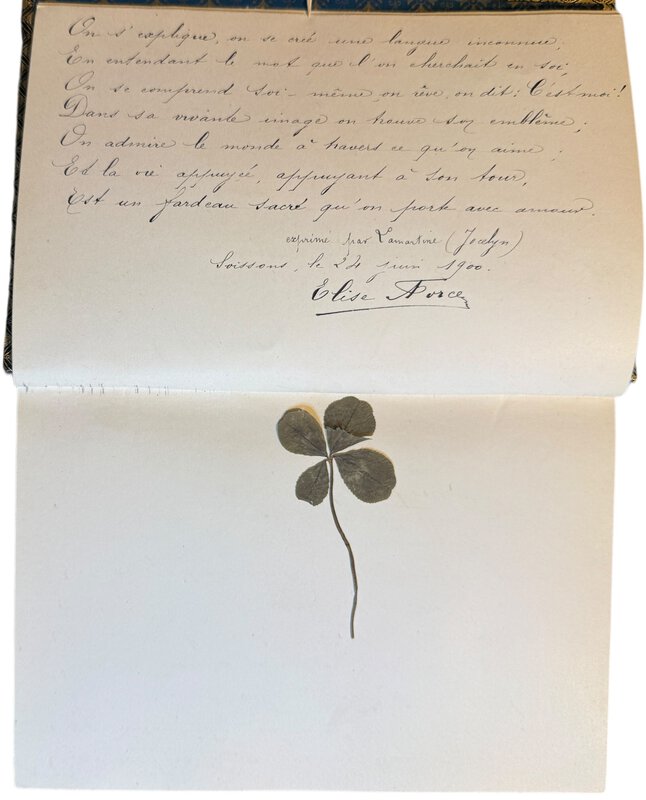 On s'explique, on se crée une langue inconnue;
En entendant le mot que l'on cherchait en soi,
On se comprend soi-même, on rêve, on dit: C'est moi!
Dans sa vivante image on trouve son emblême;
On admire le monde à travers ce qu'on aime;
Et la vie appuyée, appuyant à son tour,
Est un fardeau sacré qu'on porte avec amour.
exprimé par Lamartine (Jocelyn)
Soissons, le 24 juin 1900.
Elise